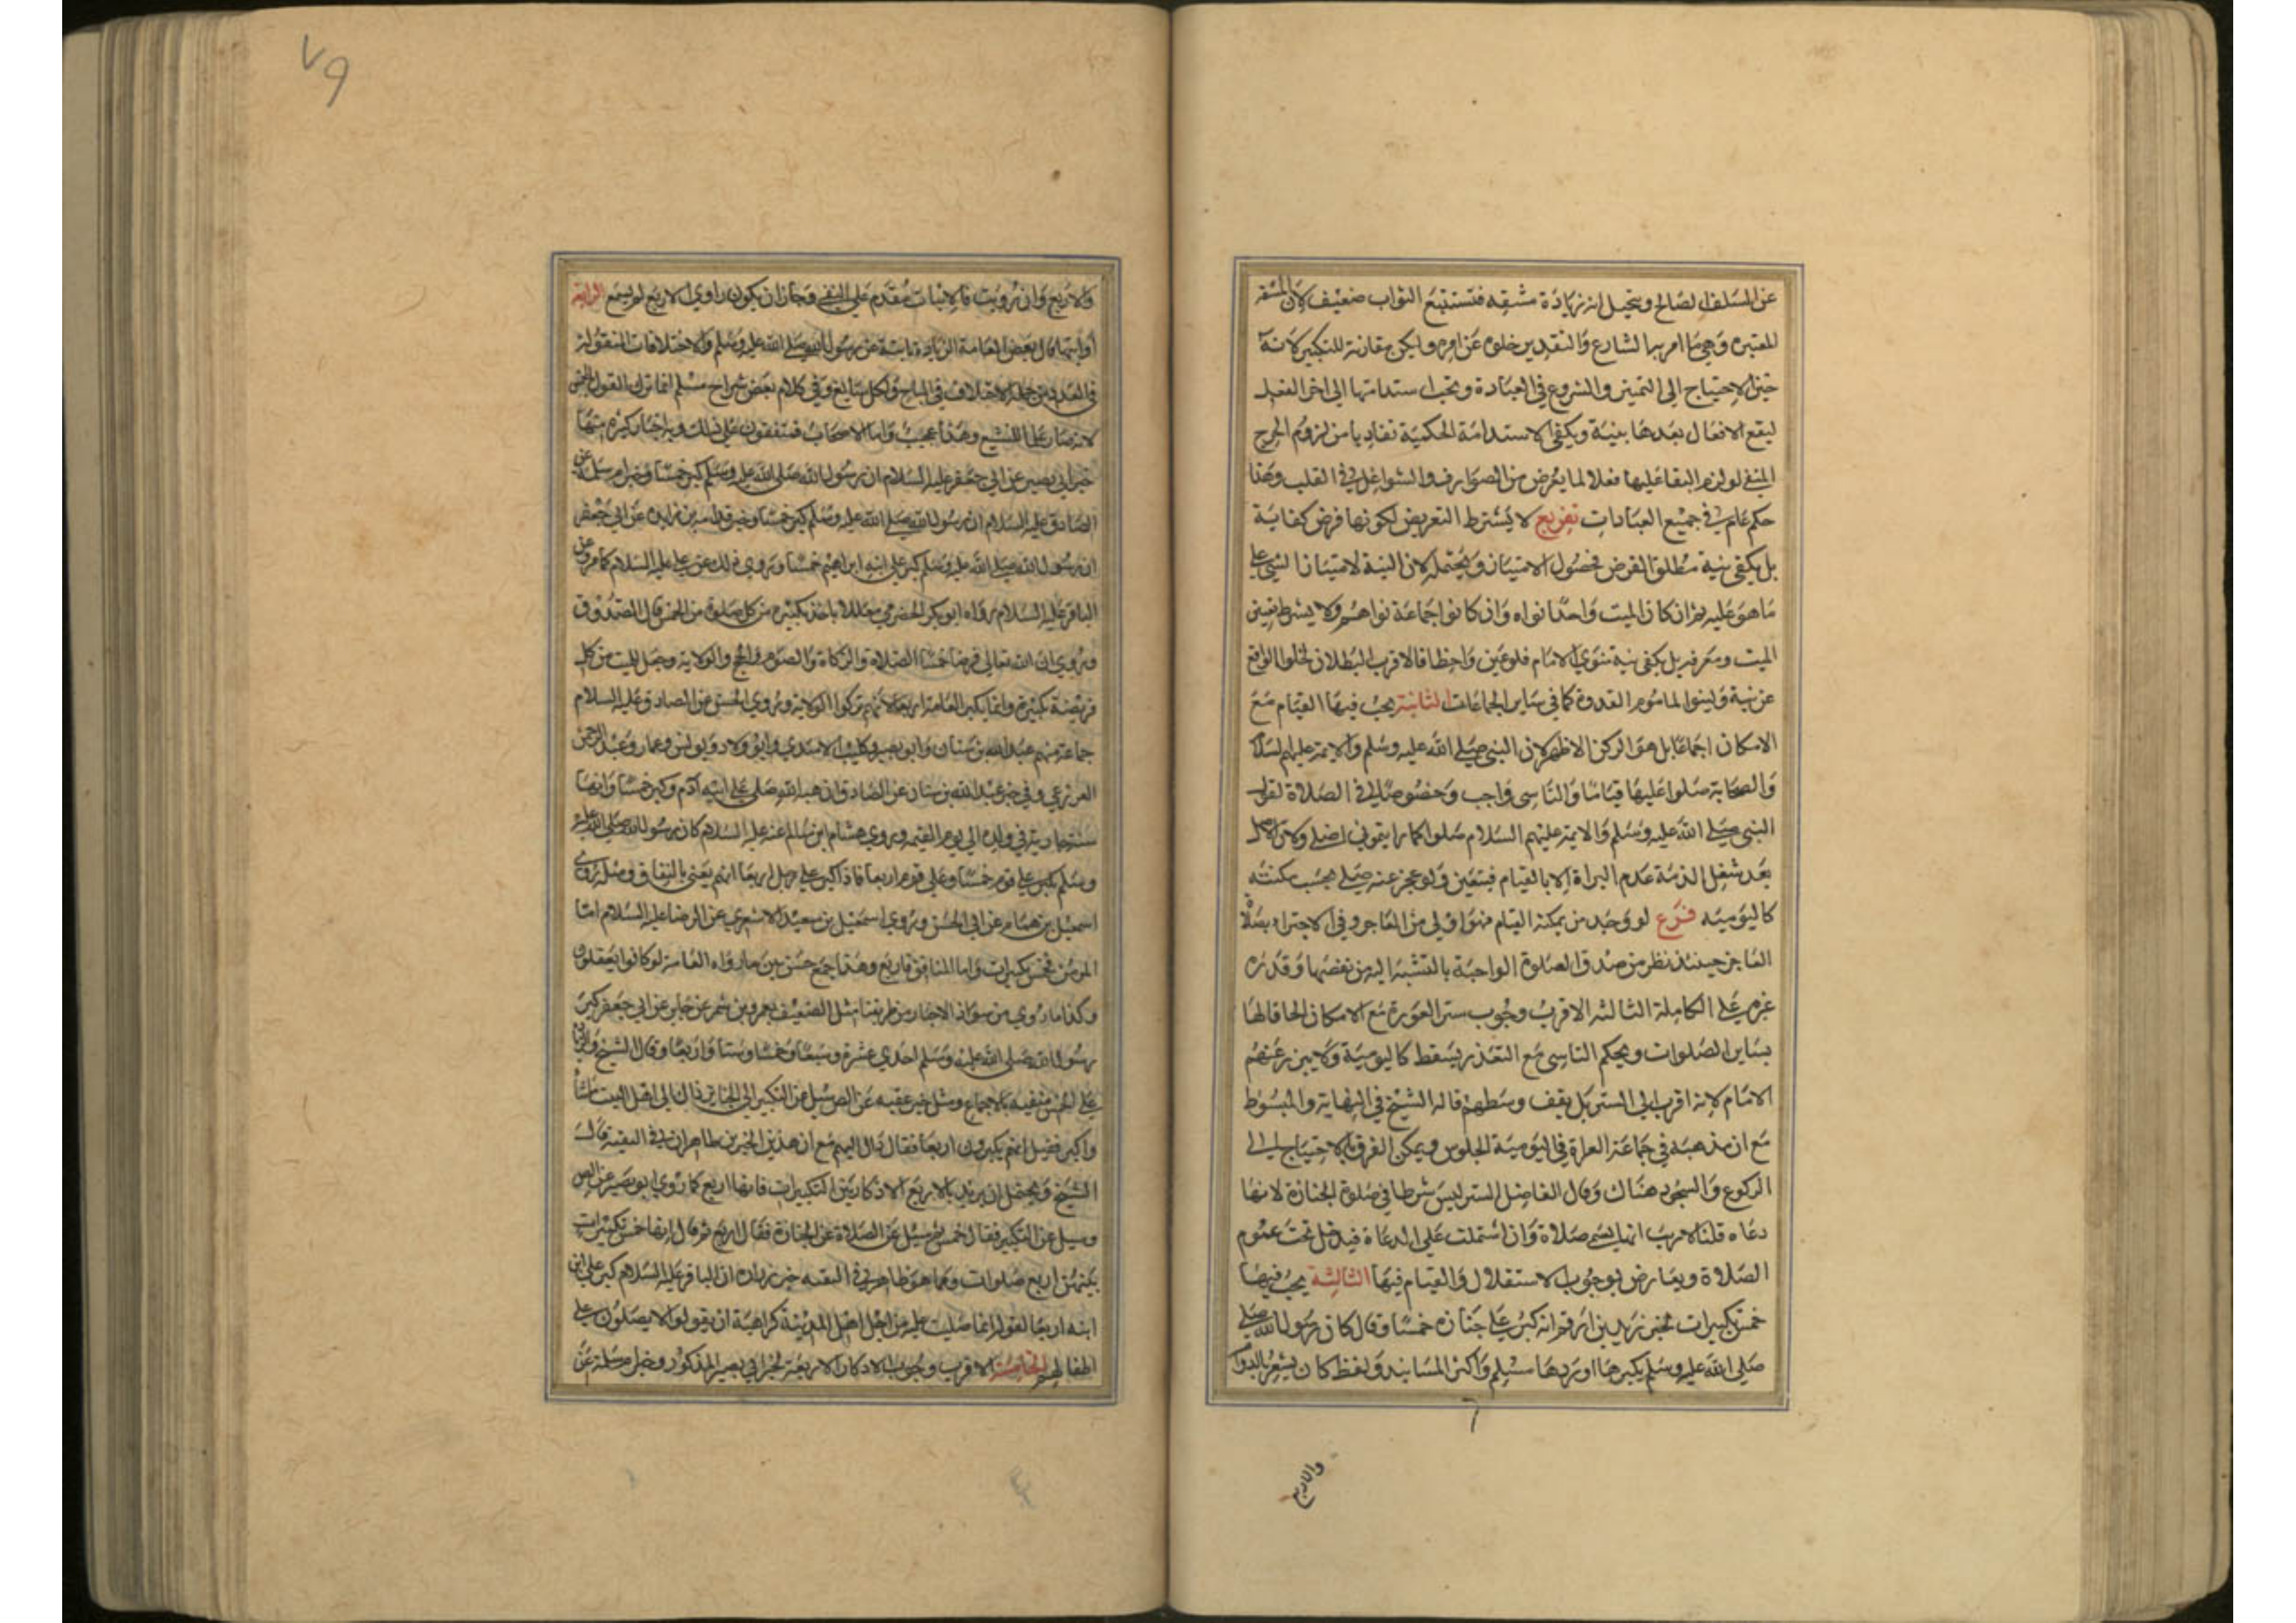 عن السلف الصالح وتخيل انه زيادة مشقه فتستتبع الثواب ضعيف لان المشقه
المعتبره وهي ما امر بها الشارع والتقدير خلوه عن امره وليكن مقارنة للتكبير لانه
حين الاحتياج الى التمييز والشروع في العبادة ويجب استدامتها الى اخر الفعل
ليقع الافعال بعدها بنية ويكفي الاستدامة الحكمية تفاديا من لزوم الحرج
المنفي لو لزم البقا عليها فعلا لما يعرض من الصوارف والشواغل في القلب وهذا
حكم عام في جميع العبادات تفريع لا يشترط التعريض لكونها فرض كفاية
بل يكفي نية مطلق الفرض لحصول الامتياز ويحتمله لان النية لامتياز الشي على
ما هو عليه ثم ان كان الميت واحدا نواه وان كانوا جماعة نواهم ولا يشترط تعيين
الميت ومعرفته بل يكفي نية منوي الامام فلو عين واخطا فالاقرب البطلان لخلو الواقع
عن نية ولينوا الماموم القدوة كما في ساير الجماعات الثانية يجب فيها القيام مع
الامكان اجماعا بل هو الركن الاظهر لان النبي صلى الله عليه وسلم والايمة عليهم السلام
والصحابة صلوا عليها قياما والتاسي واجب وخصوصا في الصلاة لقول
النبي صلى الله عليه وسلم والايمة عليهم السلام صلوا كما رايتموني اصلي ولان الاصل
بعد شغل الذمة عدم البراة الا بالقيام فيتعين ولو عجز عنه صلى بحسب مكنته
كاليومية فرع لو وجد من يمكنه القيام فهو اولى من العاجز وفي الاجتزاء بصلاة
العاجز حينئذ نظر من صدق الصلوة الواجبة بالنسبة اليه من نقصها وقدرة
غيره على الكاملة الثالثة الاقرب وجوب ستر العورة مع الامكان الحاقا لها
بساير الصلوات ويحكم التاسي مع التعذر يسقط كاليومية ولا يبرز عنهم
الامام لانه اقرب الى الستر بل يقف وسطهم قاله الشيخ في النهاية والمبسوط
مع ان مذهبه في جماعة العراة في اليومية الجلوس ويمكن الفرق بالاحتياج الى
الركوع والسجود هناك وقال الفاضل الستر ليس شرطا في صلوة الجنازة لانها
دعاء قلنا لا ريب انها يسمى صلاة وان اشتملت على الدعاء فيدخل تحت عموم
الصلاة ويعارض بوجوب الاستقلال والقيام فيها الثالثة يجب فيها
خمس تكبيرات لخبر زيد بن ارقم انه كبر على جنازه خمسا وقال كان رسول الله صلى
صلى الله عليه وسلم يكبرها اوردها مسلم واكثر المسانيد ولفظ كان يشعر بالدوام
والاربع
٧٩
والاربع وان رويت فالاثبات مقدم على النفي وجاز ان يكون راوي الاربع لم يسمع الرابعة
او ايتها قال بعض العامة الزيادة ثابتة عن رسول الله صلى الله عليه وسلم والاختلافات المنقولة
في العدد من جملة الاختلاف في المباح والكل سايغ وفي كلام بعض شراح مسلم انما ترك القول بالخمس
لانه صار علما للتشيع وهذا عجيب واما الاصحاب فمتفقون على ذلك وبه اخبار كثيرة منها
خبر ابي بصير عن ابي جعفر عليه السلام ان رسول الله صلى الله عليه وسلم كبر خمسا وخبر ام سلمة عن
الصادق عليه السلام ان رسول الله صلى الله عليه وسلم كبر خمسا وخبر قدامة بن زايده عن ابي جعفر
ان رسول الله صلى الله عليه وسلم كبر على ابنه ابراهيم خمسا وروي ذلك عن علي عليه السلام كما مر وعن
الباقر عليه السلام رواه ابو بكر الحضرمي معللا باخذ تكبيره من كل صلوة من الخمس قال الصدوق
وروي ان الله تعالى فرض خمسا الصلاة والزكاة والصوم والحج والولاية وجعل للميت من كل
فريضة تكبيرة وانما يكبر العامة اربعا لانهم تركوا الولاية وروي الخمس عن الصادق عليه السلام
جماعة منهم عبد الله بن سنان وابو بصير وكليب الاسدي وابو ولاد ويونس وعمار وعبد الرحمن
العزرمي وفي خبر عبد الله بن سنان عن الصادق ان هبة الله صلى على ابيه آدم وكبر خمسا وانها
سنة جارية في ولده الى يوم القيمة وروي هشام ابن سالم عنه عليه السلام كان رسول الله صلى الله عليه
وسلم يكبر على قوم خمسا وعلى قوم اربعا فاذا كبر على رجل اربعا اتهم يعني بالنفاق ومثله روى
اسمعيل بن همام عن ابي الحسن وروي اسمعيل بن سعيد الاشعري عن الرضا عليه السلام اما
المومن فخمس تكبيرات واما المنافق فاربع وهذا جمع حسن بين ما رواه العامة لو كانوا يعقلون
وكذا ما روي من شواذ الاخبار من طريقنا مثل الضعيف بعمرو بن شمر عن جابر عن ابي جعفر كبر
رسول الله صلى الله عليه وسلم احدي عشرة وسبعا وخمسا وستا واربعا وقال الشيخ والزيادة
على الخمس منفية بالاجماع ومثل خبر عقبه عن الص سئل عن التكبير الى الجنايز ذلك الى اهل الميت ما شاوا
واكبر فقيل انهم يكبرون اربعا فقال ذاك اليهم مع ان هذين الخبرين ظاهران في التقية قال
الشيخ ويحتمل ان يريد بالاربع الاذكار بين التكبيرات فانها اربع كما روي ابو بصير عن الص
وسيل عن التكبير فقال خمس ثم سئل عن الصلاة على الجنازة فقال اربع ثم قال انها خمس تكبيرات
بينهن اربع صلوات ومما هو ظاهر في التقية خبر زراره ان الباقر عليه السلام كبر على ابن
ابنه اربعا لقوله انما صليت عليه من اجل اهل المدينة كراهية ان يقولوا لا يصلون على
اطفالهم الخامسة الاقرب وجوب الاذكار الاربعة لخبر ابي بصير المذكور وخبر ام سلمة عن